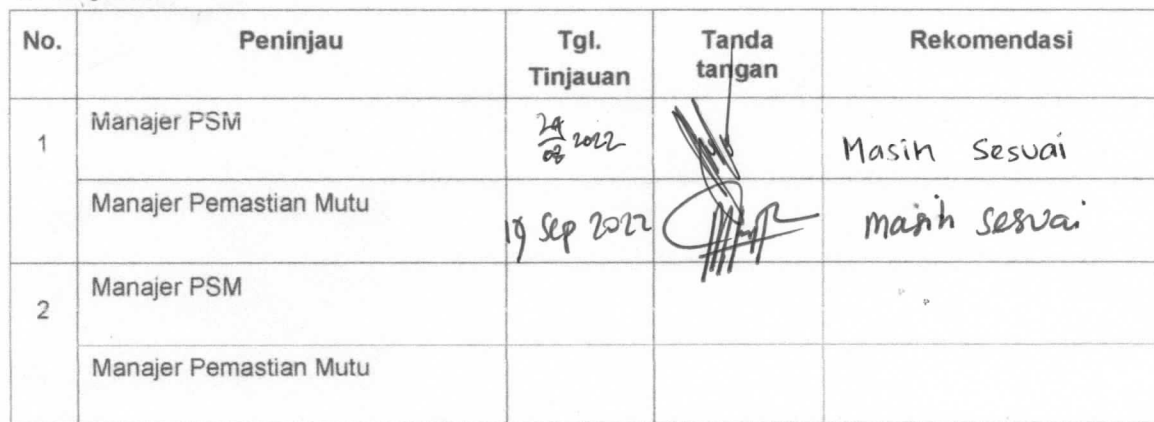 No. Peninjau Tgl. Tinjauan Tanda tangan Rekomendasi
1 Manajer PSM 24/08 2022 Masih Sesuai
Manajer Pemastian Mutu 19 Sep 2022 masih sesuai
2 Manajer PSM
Manajer Pemastian Mutu